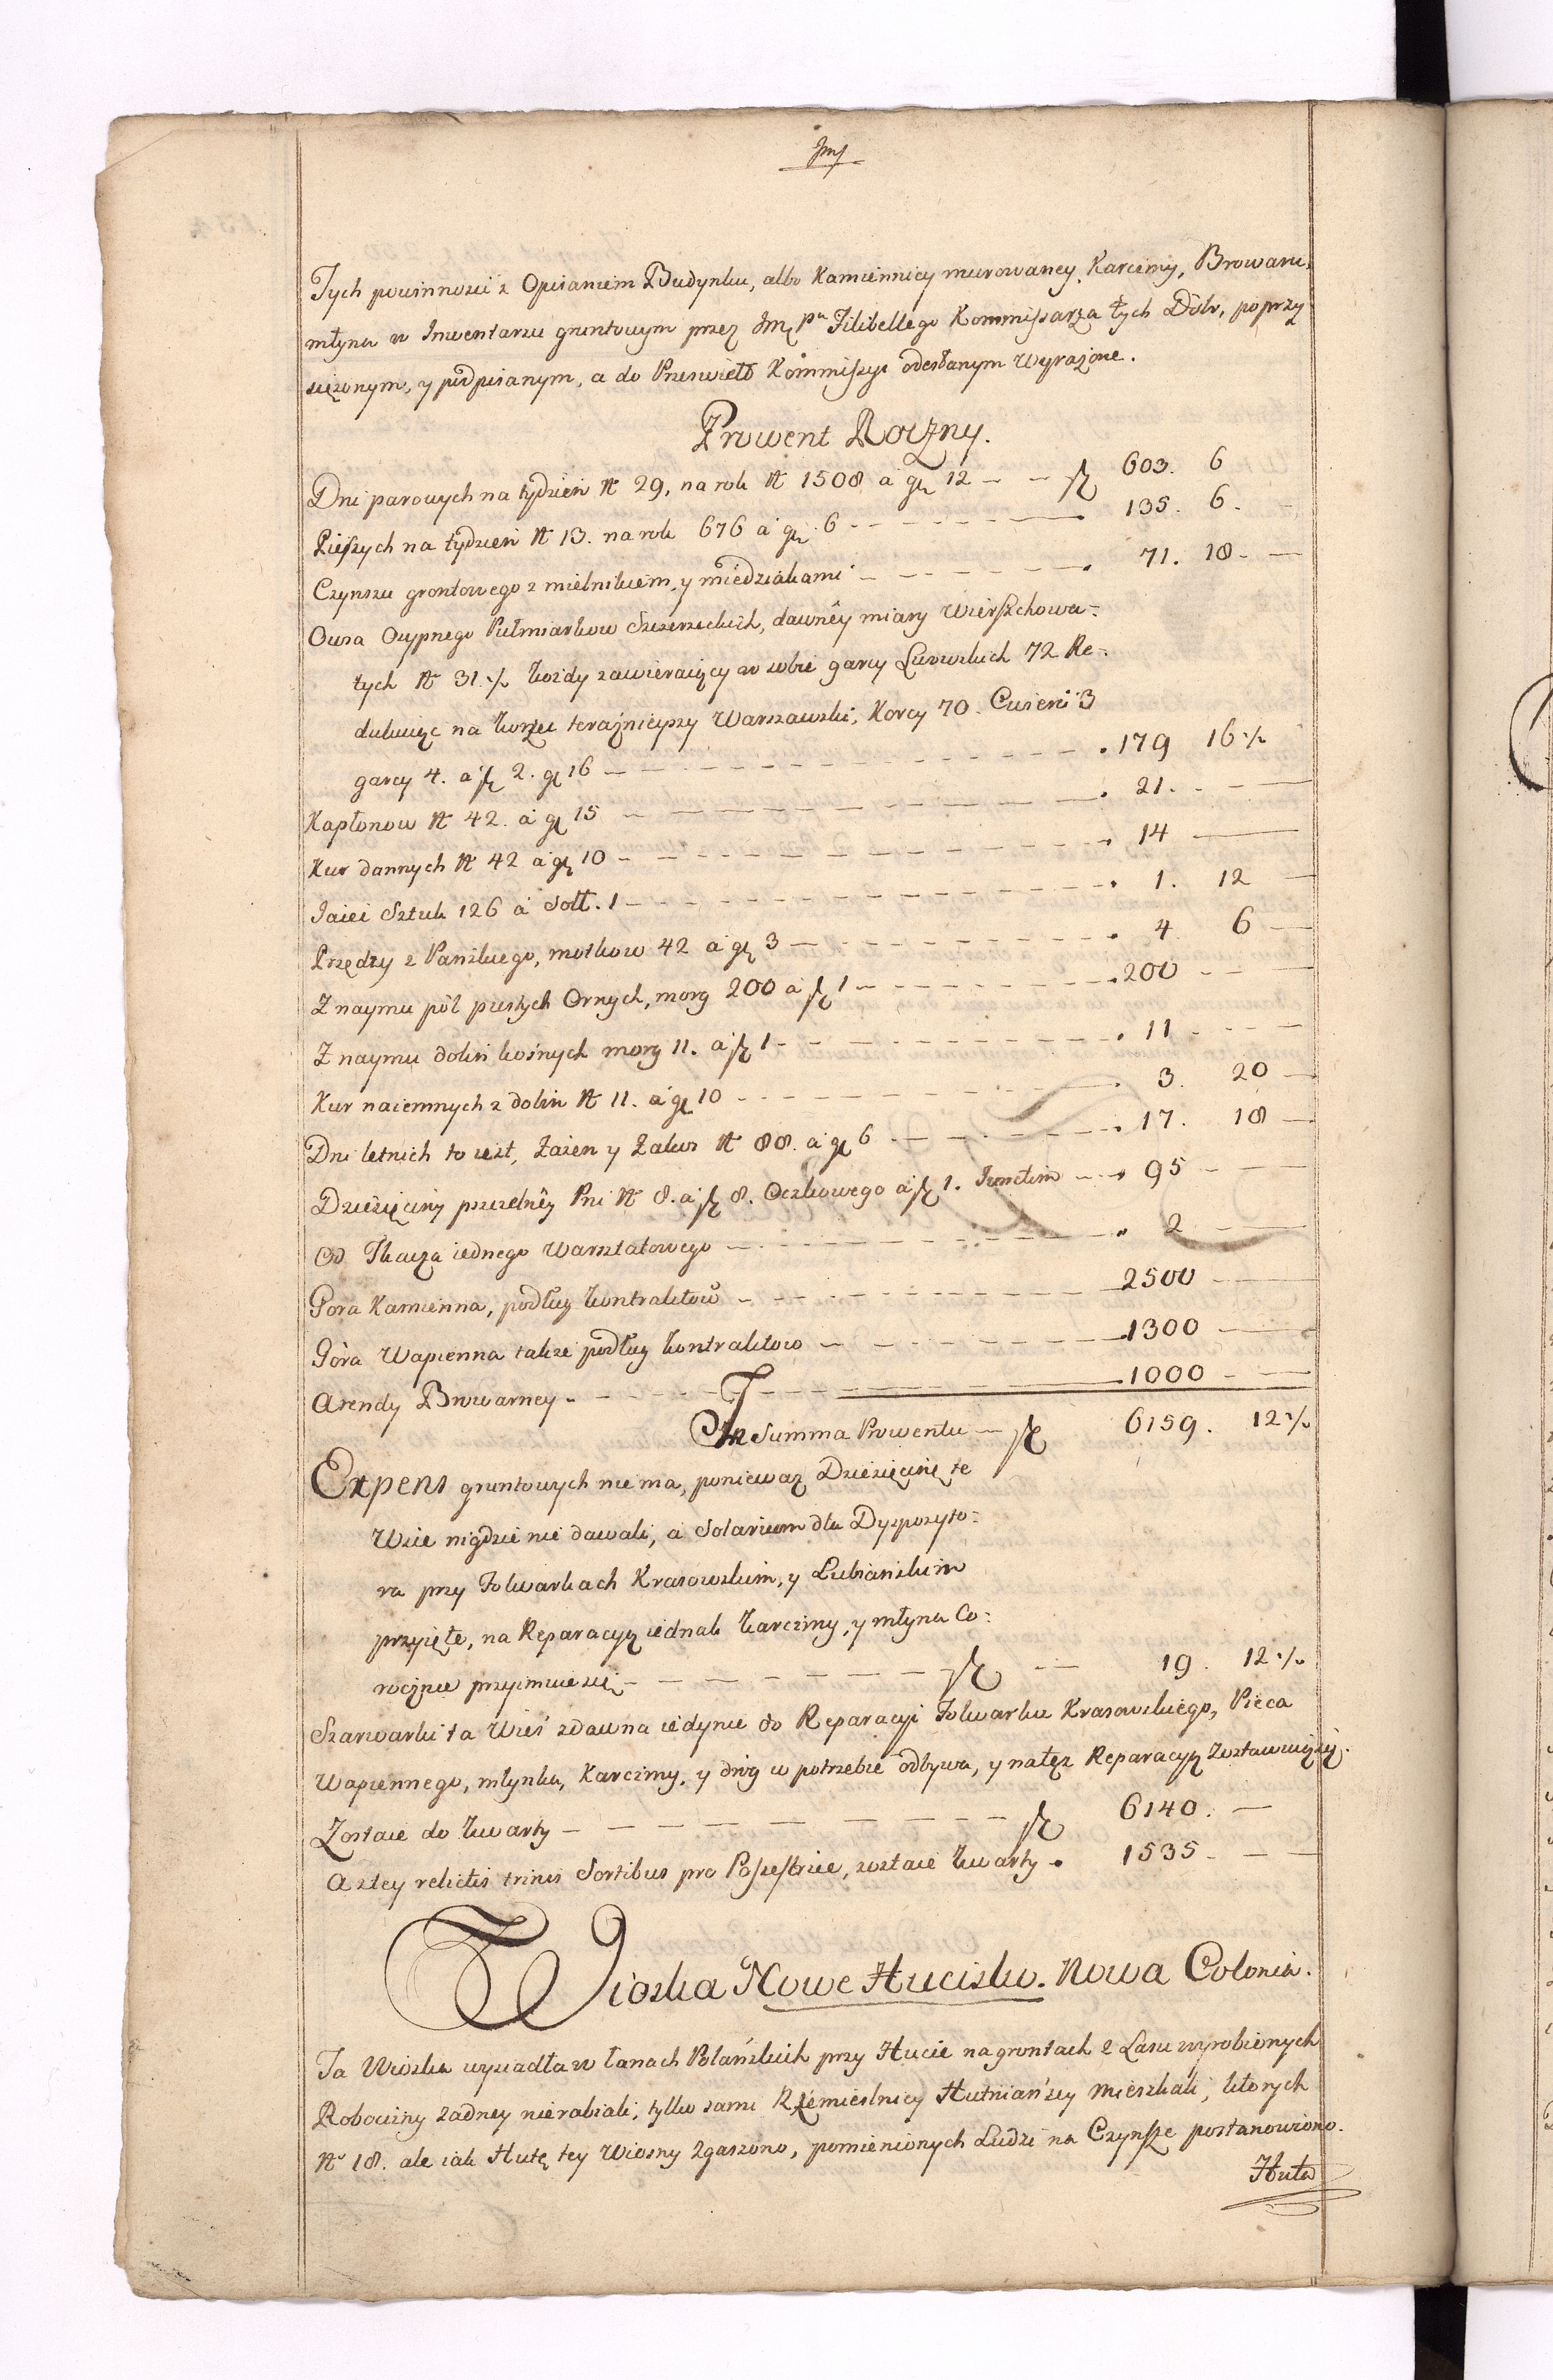 Tych powinnosci z Opisaniem Budynku, albo Kamiennicy murowaney, Karczmy, Browaru,
młyna w Inwentarzu gruntowym przez Jmę Pa Filibellego Kommissarza tych Dobr, poprzy
siężonym, y podpisanym, a do Przeświett Kommissyi odesłanym wyrażone.
Prowent Roczny.
Dni parowych na tydzień N 29, na rok N 1508 a gr 12 – – fl 603. 6
Pieszych na tydzień N 13. na rok 676 a gr 6 – – – 135. 6.
Czynszu grontowego z mielnikiem, y miedziakami – – – 71. 18 –
Owsa Osypnego Pułmiarkow Szczerzeckich, dawnéy miary wierszchowa=
tych N 31.⁒ każdy zawieraiący w sobie garcy Lwowskich 72 Re=
dukuiąc na korzec teraznieyszy Warszawski, Korcy 70. Cwierci 3
garcy 4. a fl 2. gr 16 – – – 179 16⁒
Kapłonow N 42. a gr 15 – – – 21. – –
Kur dannych N 42 a gr 10 – – – 14 –
Jaiei Sztuk 126 a Soll. 1 – – – 1. 12 –
Przędzy z Pańskiego, motkow 42 a gr 3 – – – 4 6 –
Z naymu pól pustych Ornych, morg 200 a fl 1 – – – 200 – –
Z naymu dolin kośnych morg 11. a fl 1 – – – 11 – –
Kur naiemnych z dolin N 11. a gr 10 – – – 3. 20 –
Dni letnich to iest, Zażen y Zakos N 88. a gr 6 – – – 17. 18 –
Dziesięciny pszczelnéy Pni N 8. a fl 8. Oczkowego a fl 1. Junctim – – 95 – –
Od Tkacza iednego Warsztatowego – – – 2 –
Gora Kamienna, podług kontraktow – – – 2500 –
Góra Wapienna także podług kontraktow – – – 1300 –
Arendy Browarney – – – 1000 – –
In Summa Prowentu – fl 6159. 12⁒
Expens gruntowych nie ma, ponieważ Dziesięcinę te
Wsie nigdzie nie dawali, a Solarium dla Dyspozyto=
ra przy Folwarkach Krasowskim, y Lubiańskim
przyięte, na Reparacyą iednak karczmy, y młyna Co=
rocznie przyimuie się – – – fl – – 19. 12⁒
Szarwarki ta Wieś zdawna iedynie do Reparacyi Folwarku Krasowskiego, Pieca
Wapiennego, młynka, Karczmy, y dróg w potrzebie odbywa, y na tęż Reparacyą Zostawuią się.
Zostaie do kwarty – – – fl 6140. –
a z tey relictis trinis Sortibus pro Possessrice, zostaie kwarty . 1535 – –
Wioska Nowe Hucisko. Nowa Colonia.
Ta Wioska wysiadła w łanach Polańskich przy Hucie na grontach z Lasu wyrobionych
Robocizny żadney nierabiali, tylko sami Rzemieslnicy Hutniańscy mieszkali, ktorych
N 18. ale iak Hutę tey Wiosny zgaszono, pomienionych Ludzi na Czynsze postanowiono.
Huta